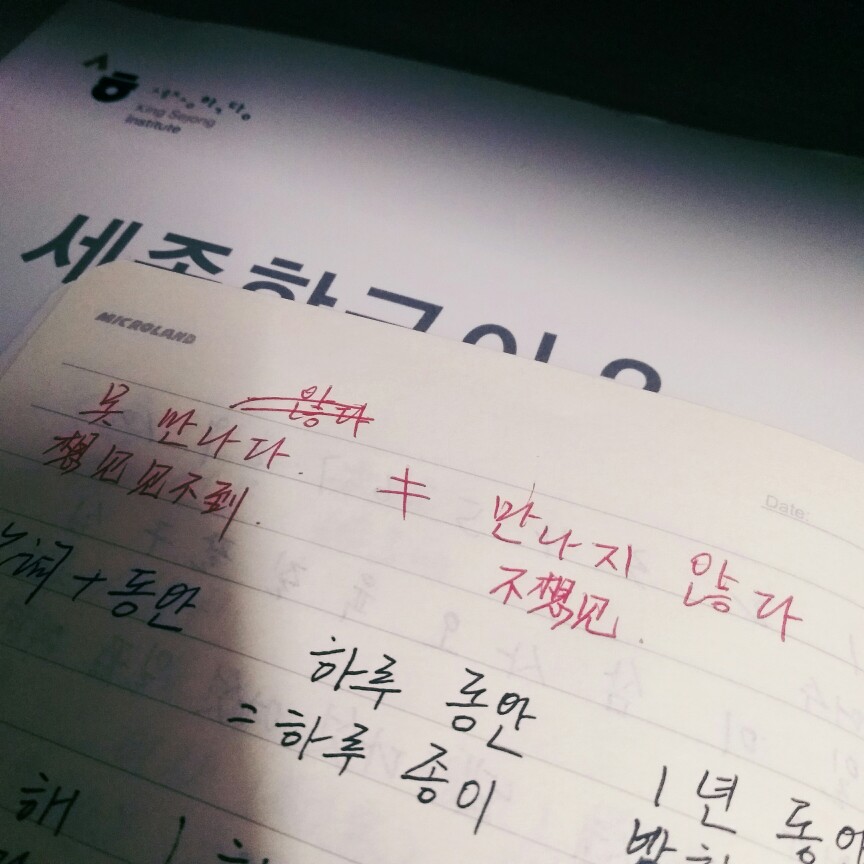 세종학당
King Sejong
Institute
세종한국어 2
MICROLAND
Date:
않다
못 만나다.
想见见不到.
≠
만나지 않다
不想见.
+ 동안
하루 동안
= 하루 종이
1년 동안
해